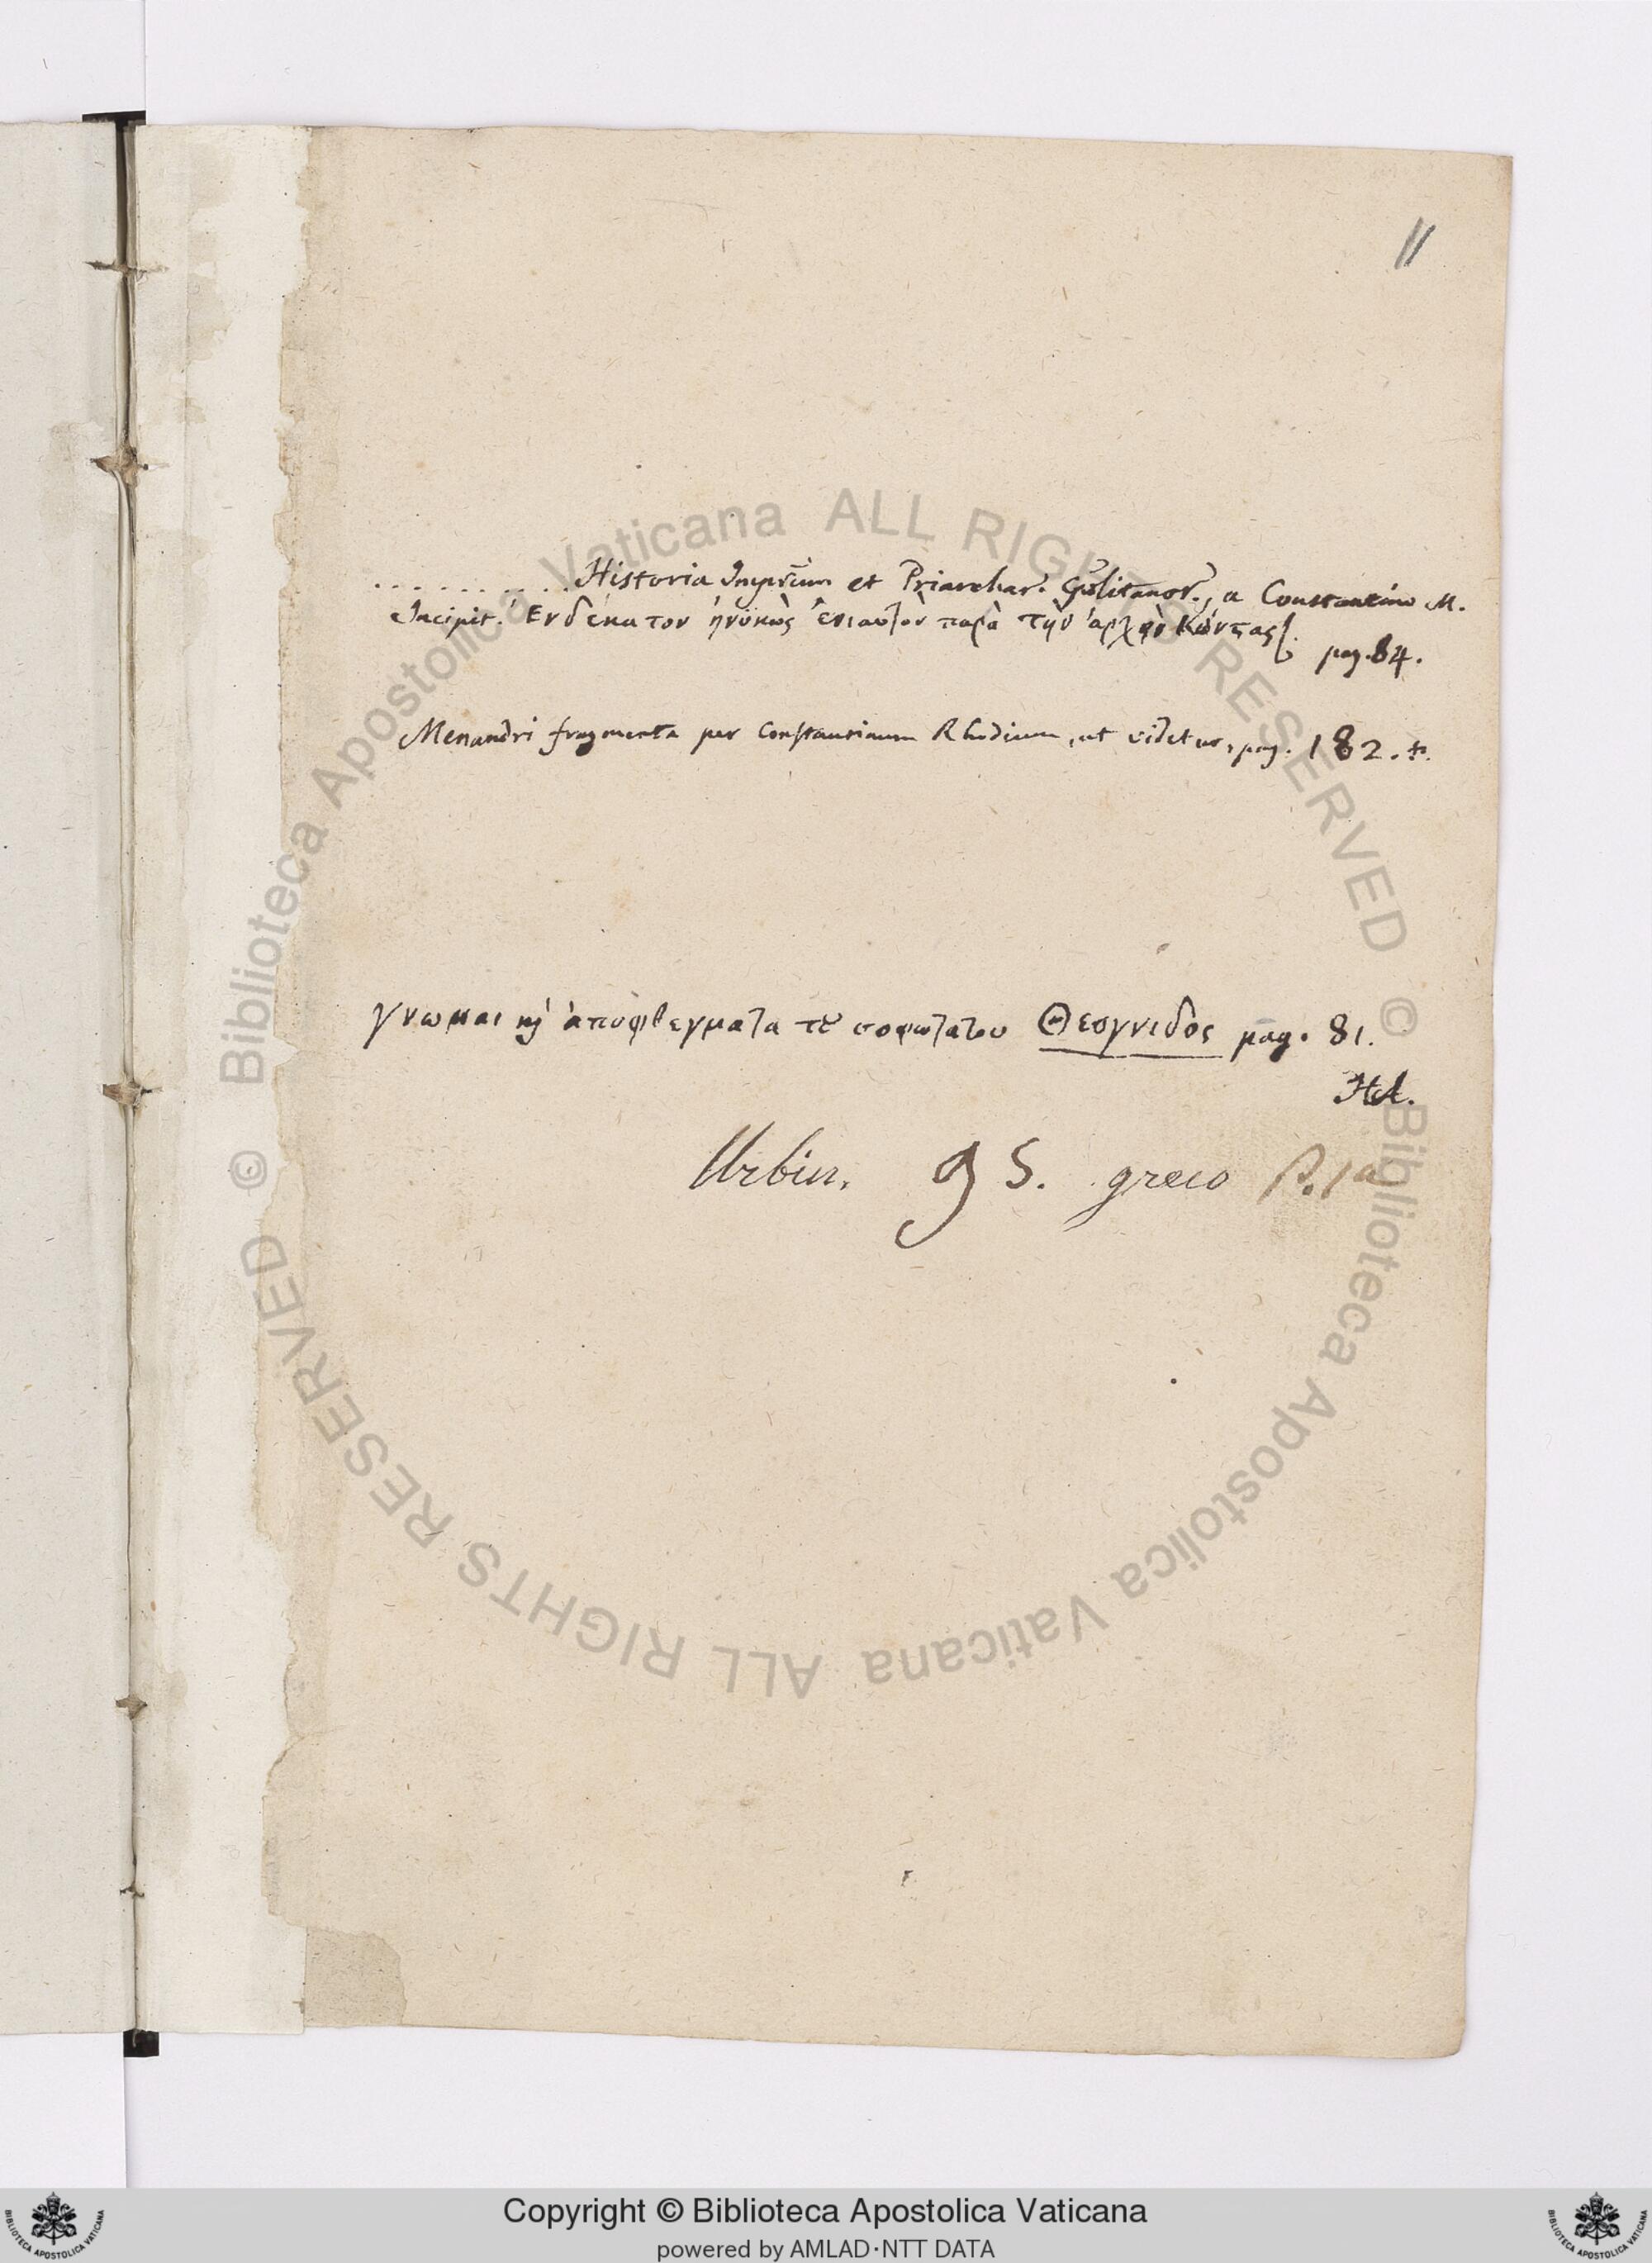 II
. . . . . . . . . . Historia Imp̅r̅um et P̅riarchar. C̅p̅olitanor., a Constantino M.
Incipit. Ενδέκατον ἠνυκὼς ἐνιαυτὸν παρὰ τὴν ἀρχὴν Κώνστας
pag. 84.
Menandri fragmenta per Constantinum Rhodium, ut videtur, pag. 182. t.
γνωμαι κὶ ἀποφθεγματα τȣ σοφωτατου Θεογνιδος pag. 81.
Urbin. 95. greco P. 1ª
© Biblioteca Apostolica Vaticana ALL RIGHTS RESERVED © Biblioteca Apostolica Vaticana ALL RIGHTS RESERVED
Copyright © Biblioteca Apostolica Vaticana
powered by AMLAD·NTT DATA
BIBLIOTECA APOSTOLICA VATICANA
BIBLIOTECA APOSTOLICA VATICANA